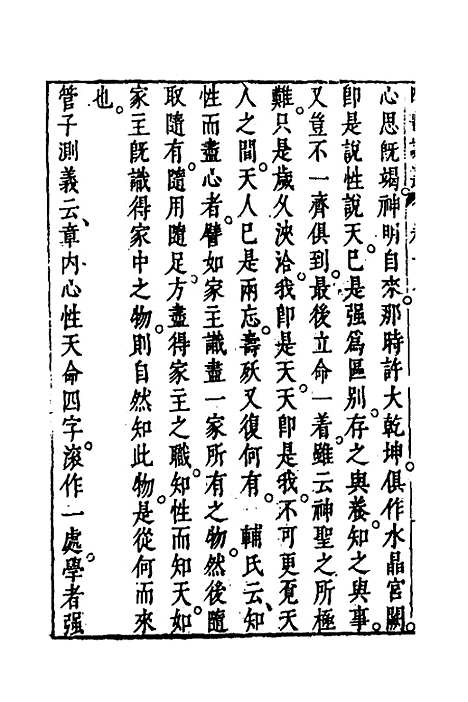 心思旣竭神明自來那時許大乾坤俱作水晶宮闕
卽是說性說天已是强爲區别存之與養知之與事
又豈不一齊俱到最後立命一着雖云神聖之所極
難只是歲久浹洽我卽是天天卽是我不可更覓天
人之間天人已是兩忘壽殀又復何有　輔氏云知
性而盡心者譬如家主識盡一家所有之物然後隨
取隨有隨用隨足方盡得家主之職知性而知天如
家主旣識得家中之物則自然知此物是從何而來
也
管子測義云章内心性天命四字滚作一處學者强